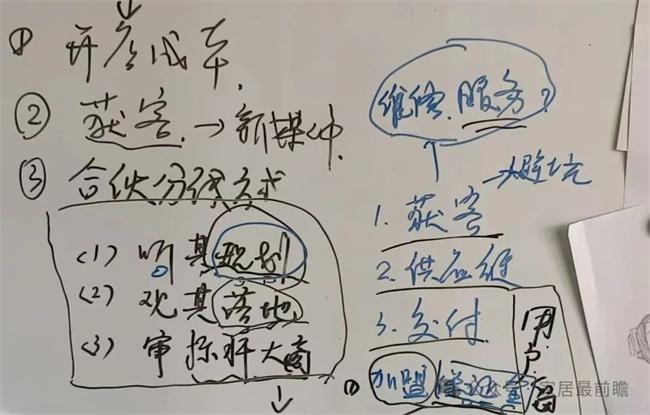 ① 开店成本,
② 获客. → 新媒体,
③ 合伙分钱方式
(1) 听其规划
(2) 观其落地
(3) 审标杆大商
维修.服务?
避坑
1. 获客
2. 供应链
3. 交付
① 加盟
用户
公众号·家居最前瞻